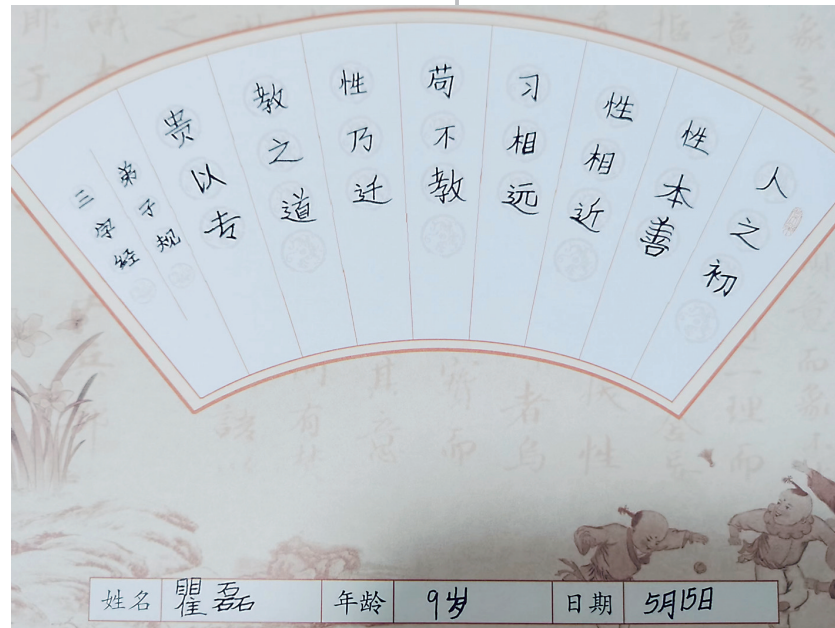 人之初
性本善
性相近
习相远
苟不教
性乃迁
教之道
贵以专
弟子规
三字经
姓名 瞿磊 年龄 9岁 日期 5月15日